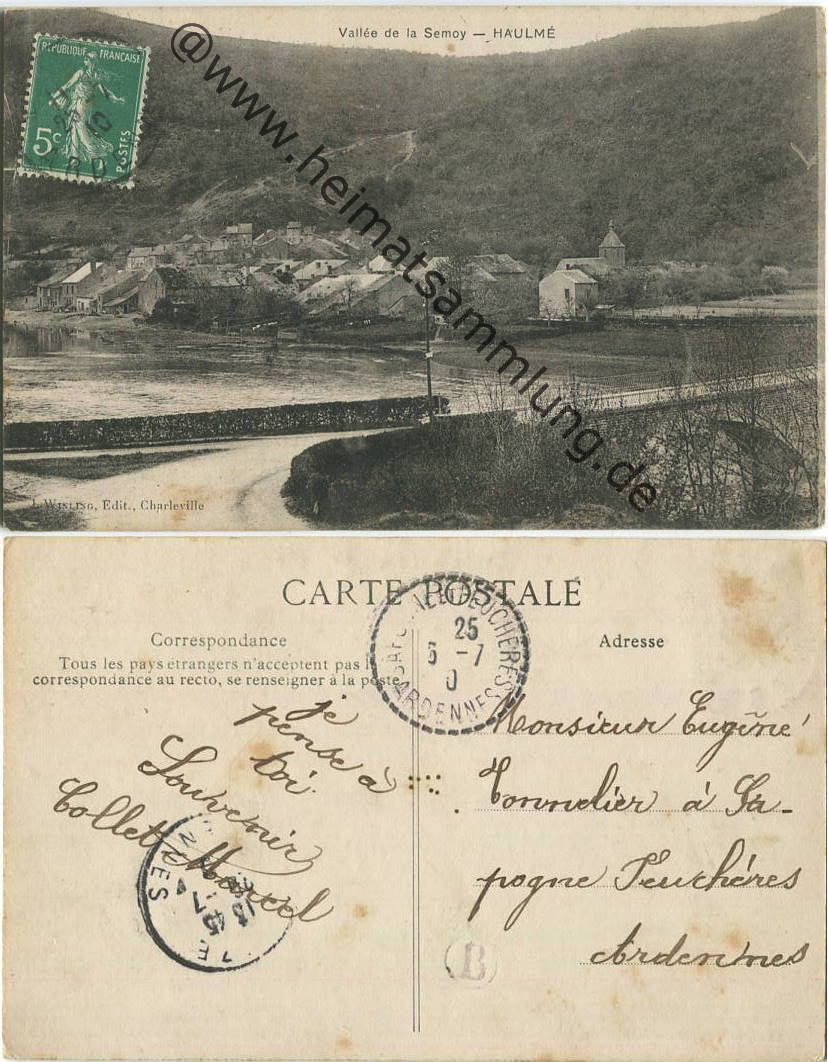 Vallée de la Semoy — HAULMÉ
RÉPUBLIQUE FRANÇAISE
5c
POSTES
@www.heimatsammlung.de
J. WINLING, Edit., Charleville
CARTE POSTALE
Correspondance
Tous les pays étrangers n'acceptent pas l
correspondance au recto, se renseigner à la poste
Adresse
FEUCHÈRES
25
6 - 7
0
ARDENNES
je
pense à
toi
Souvenir
Collet Marcel
Monsieur Eugène
Tonnelier à Sa-
pogne Feuchères
Ardennes
NNES
B